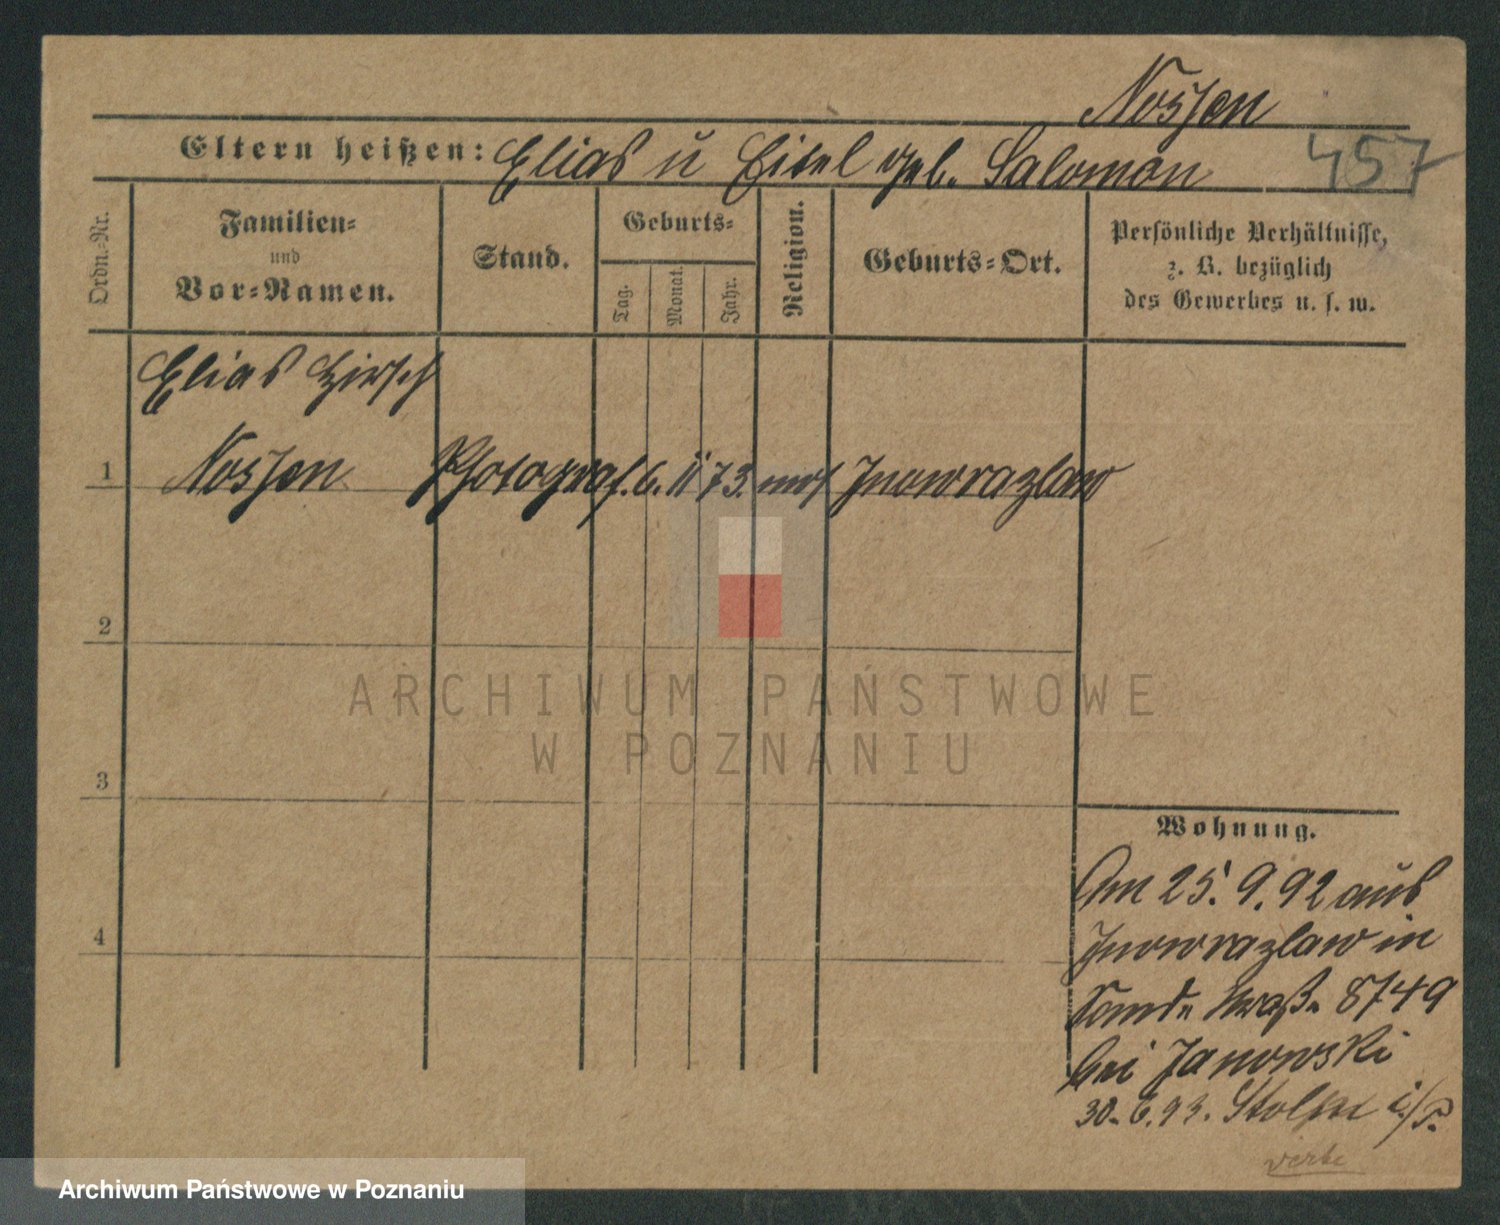 Nossen
Eltern heißen: Elias u Eitel geb. Salomon
457
Ordn.-Nr.
Familien-
und
Vor-Namen.
Stand.
Geburts-
Tag.
Monat.
Jahr.
Religion.
Geburts-Ort.
Persönliche Verhältnisse,
z. B. bezüglich
des Gewerbes u. s. w.
Elias Hirsch
1 Nossen Photograf. 6. 11 73. mos Inowrazlaw
2
3
4
Wohnung.
Am 25. 9. 92 aus
Inowrazlaw in
Straße 8749
bei Janowski
30. 6. 93. Stolp i/P.
ARCHIWUM PAŃSTWOWE
W POZNANIU
Archiwum Państwowe w Poznaniu